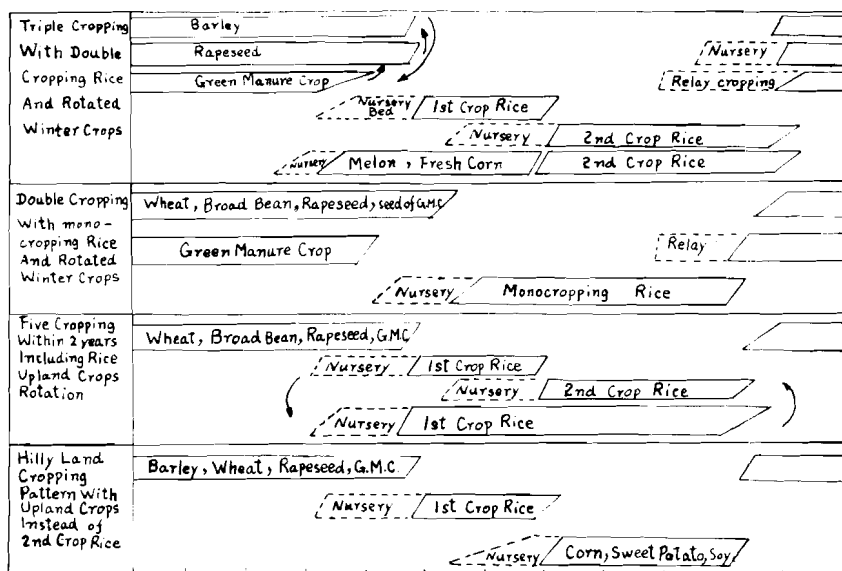 Triple Cropping
With Double
Cropping Rice
And Rotated
Winter Crops
Barley
Rapeseed
Green Manure Crop
Nursery
Relay cropping
Nursery
Bed
1st Crop Rice
Nursery
2nd Crop Rice
Nursery
Melon, Fresh Corn
2nd Crop Rice
Double Cropping
With mono-
cropping Rice
And Rotated
Winter Crops
Wheat, Broad Bean, Rapeseed, seed of G.M.C
Green Manure Crop
Relay
Nursery
Monocropping Rice
Five Cropping
Within 2 years
Including Rice
Upland Crops
Rotation
Wheat, Broad Bean, Rapeseed, G.M.C
Nursery
1st Crop Rice
Nursery
2nd Crop Rice
Nursery
1st Crop Rice
Hilly Land
Cropping
Pattern With
Upland Crops
Instead of
2nd Crop Rice
Barley, Wheat, Rapeseed, G.M.C.
Nursery
1st Crop Rice
Nursery
Corn, Sweet Potato, Soy